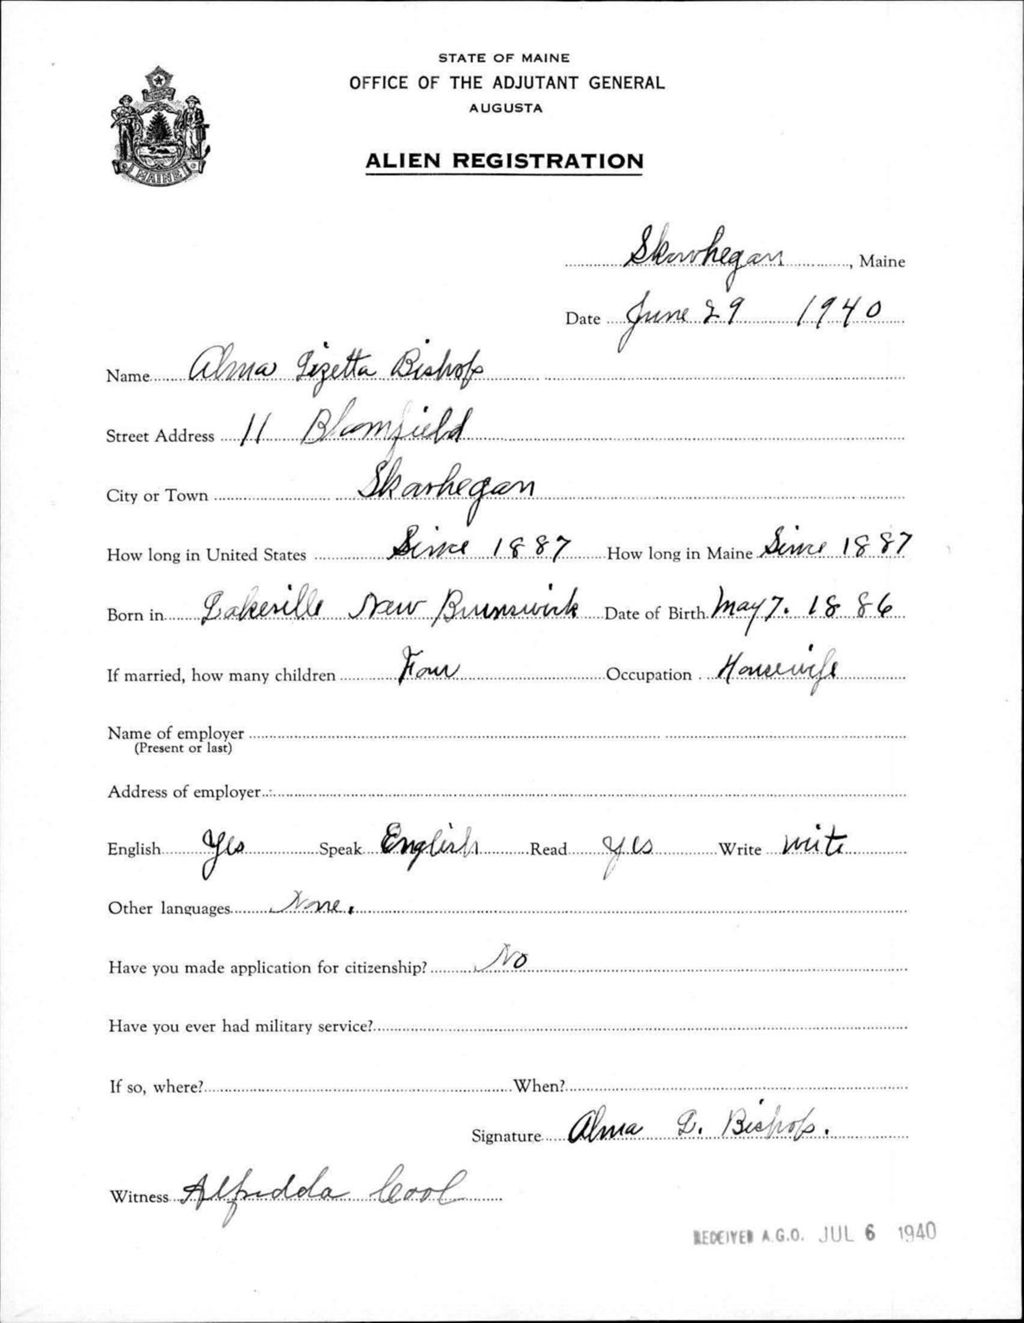 STATE OF MAINE
OFFICE OF THE ADJUTANT GENERAL
AUGUSTA
ALIEN REGISTRATION
MAINE
Skowhegan, Maine
Date June 29 1940
Name Alma Lizetta Bishop
Street Address 11 Bloomfield
City or Town Skowhegan
How long in United States Since 1887 How long in Maine Since 1887
Born in Lakeville New Brunswick Date of Birth May 7. 1886
If married, how many children Four Occupation Housewife
Name of employer
(Present or last)
Address of employer
English Yes Speak English Read yes Write write
Other languages None.
Have you made application for citizenship? No
Have you ever had military service?
If so, where? When?
Signature Alma L. Bishop.
Witness Alfredda Cool
RECEIVED A.G.O. JUL 6 1940